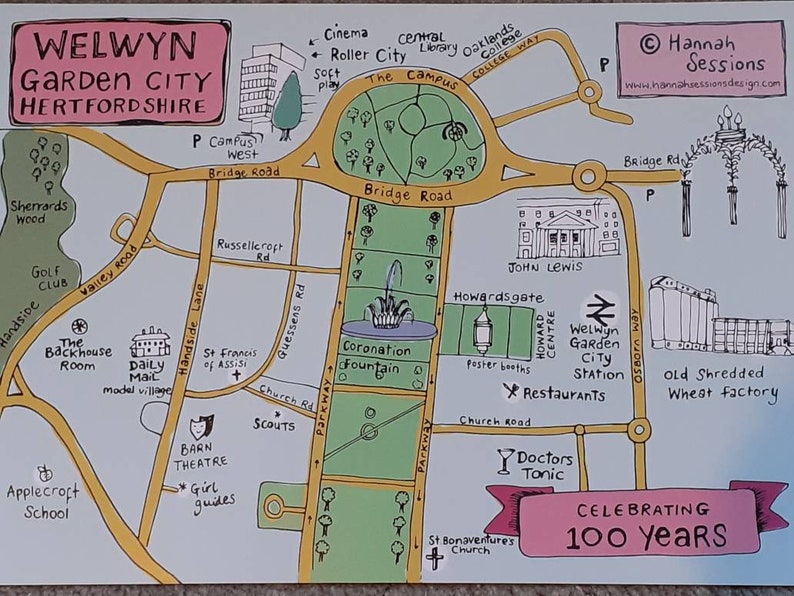 WELWYN
GARDEN CITY
HERTFORDSHIRE
Cinema
Roller City
Soft
play
Central
Library
Oaklands
College
COLLEGE WAY
P
© Hannah
Sessions
www.hannahsessionsdesign.com
The Campus
P Campus
West
Bridge Road
Bridge Road
Bridge Rd
P
Sherrards
Wood
GOLF
CLUB
Handside
Valley Road
Russellcroft
Rd
Handside Lane
Guessens Rd
JOHN LEWIS
Howardsgate
HOWARD
CENTRE
Poster booths
Welwyn
Garden
City
Station
OSBORN WAY
Old Shredded
Wheat Factory
The
Backhouse
Room
DAILY
MAIL
model village
St Francis
of Assisi
Church Rd
Scouts
Coronation
Fountain
PARKWAY
PARKWAY
Restaurants
Church Road
BARN
THEATRE
Girl
guides
Applecroft
School
Doctors
Tonic
St. Bonaventure's
Church
CELEBRATING
100 YEARS